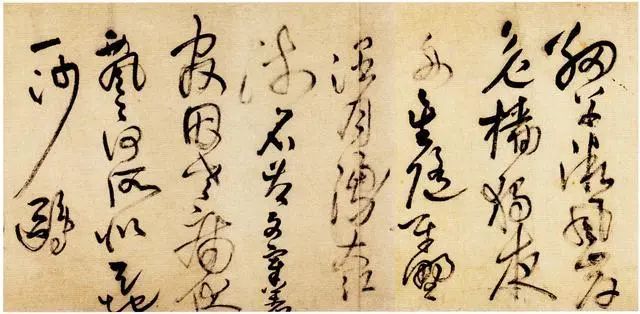 細草微風岸
危檣獨夜
舟星隨平野
濶月湧大江
流名豈文章著
官因老病休
飄〻何所似天地
一沙鷗